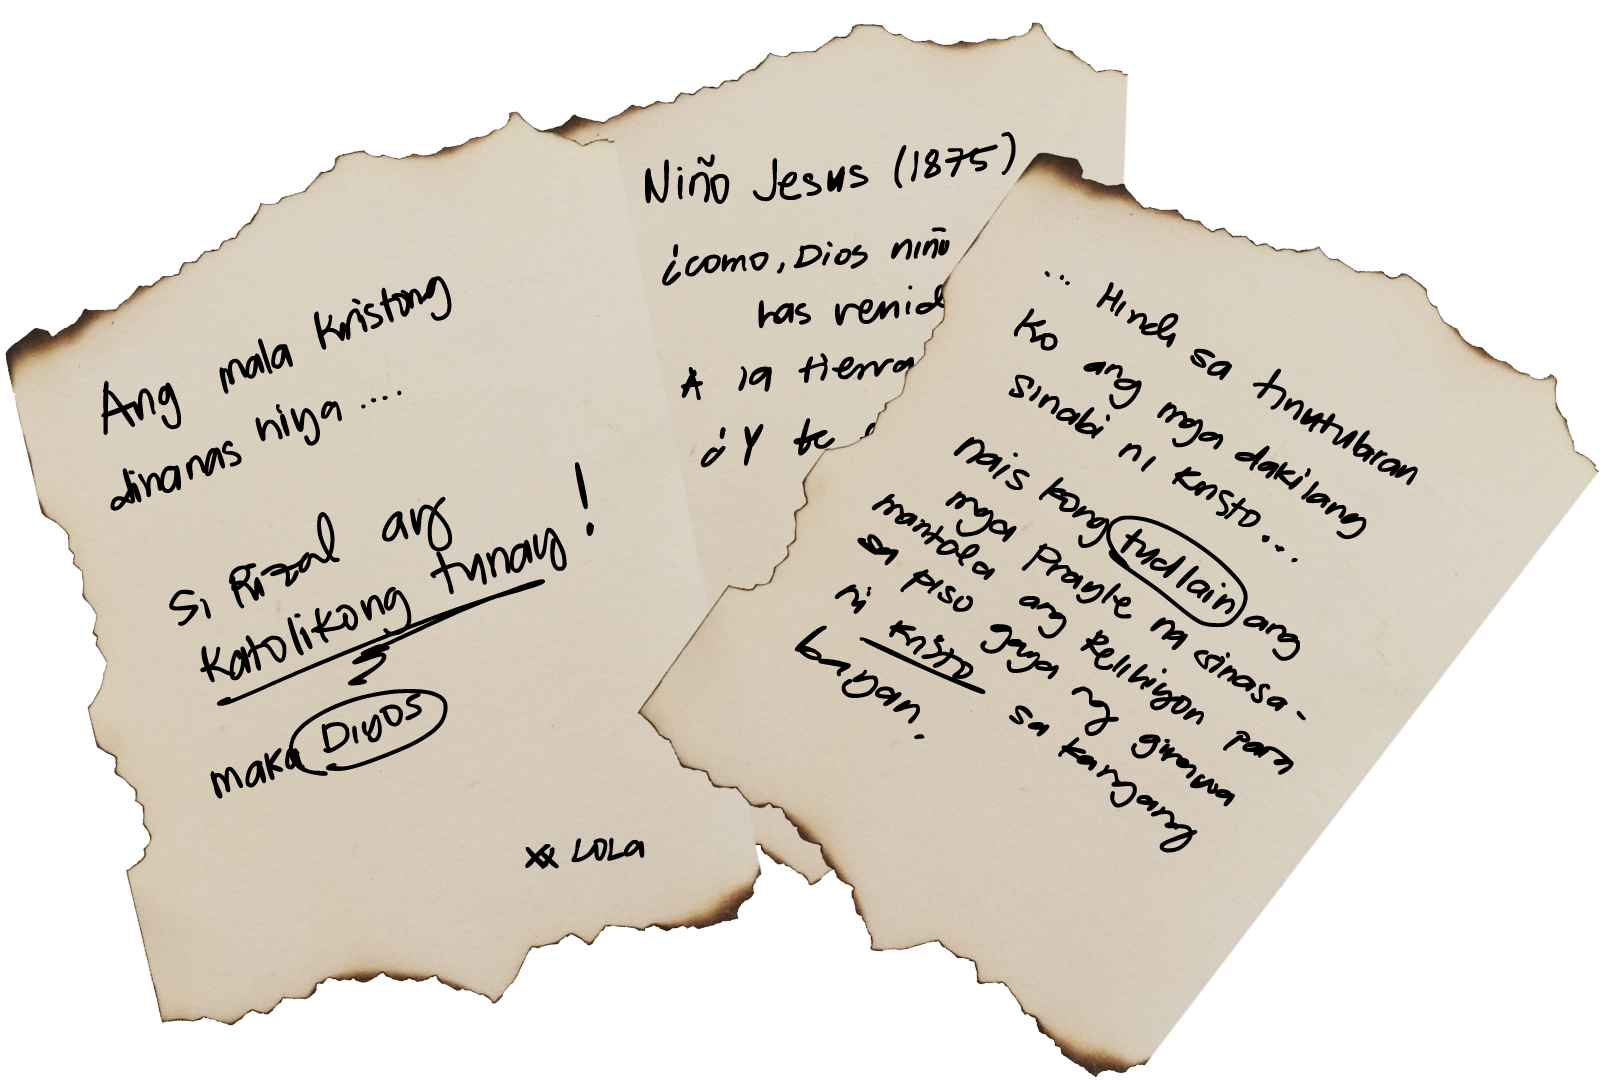 Ang mala Kristong
dinanas niya ....
Si Rizal ay
Katolikong tunay!
maka Diyos
xx LOLA
Niño Jesus (1875)
¿como, Dios niño
has venid
A la tierra
¿Y te
... Hindi sa tinutuluran
Ko ang mga dakilang
sinabi ni Kristo...
nais kong tudlain ang
mga Prayle na crinasa-
mantala ang Relihiyon para
sa piso gaya ng ginawa
ni Kristo sa kanyang
bayan.